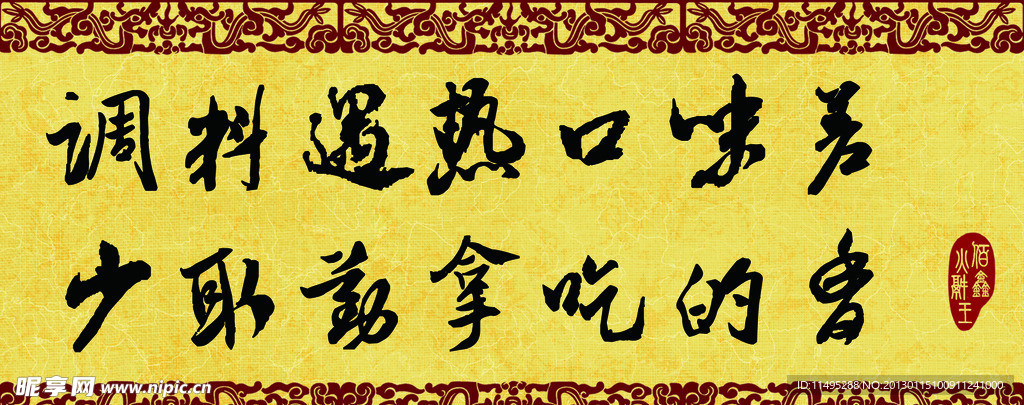 调料遇热口味差
少取勤拿吃的香
佰鑫
火
王
昵享网 www.nipic.cn
ID:11495288 NO.20130115100911241000